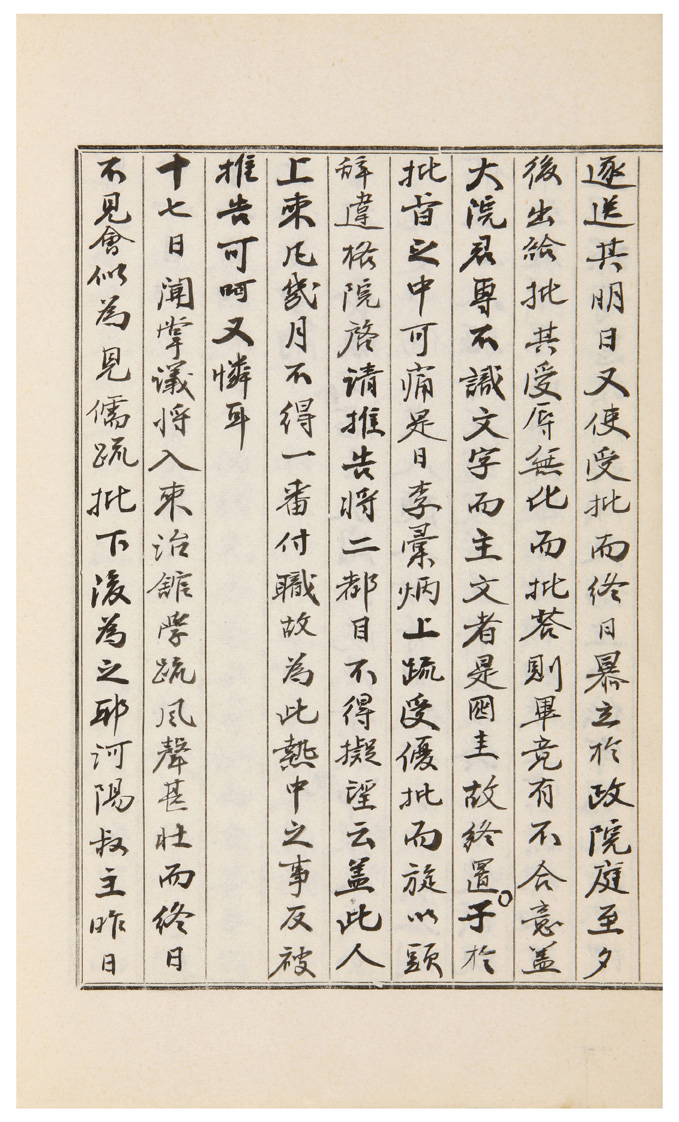 逐送其明日又使受批而終日暴立於政院庭至夕
後出給批其受辱無比而批荅則畢竟有不合意盖
大院君專不識文字而主文者是圈圭故終置于於
批旨之中可痛是日李彙炳上疏受優批而旋以頭
辞違格院啓请推告將二都目不得擬望云盖此人
上来凡幾月不得一番付職故為此熱中之事反被
推告可呵又憐耳
十七日聞掌議將入来治舘學疏風聲甚壯而終日
不見會似為見儒疏批下後為之耶河陽叔主昨日